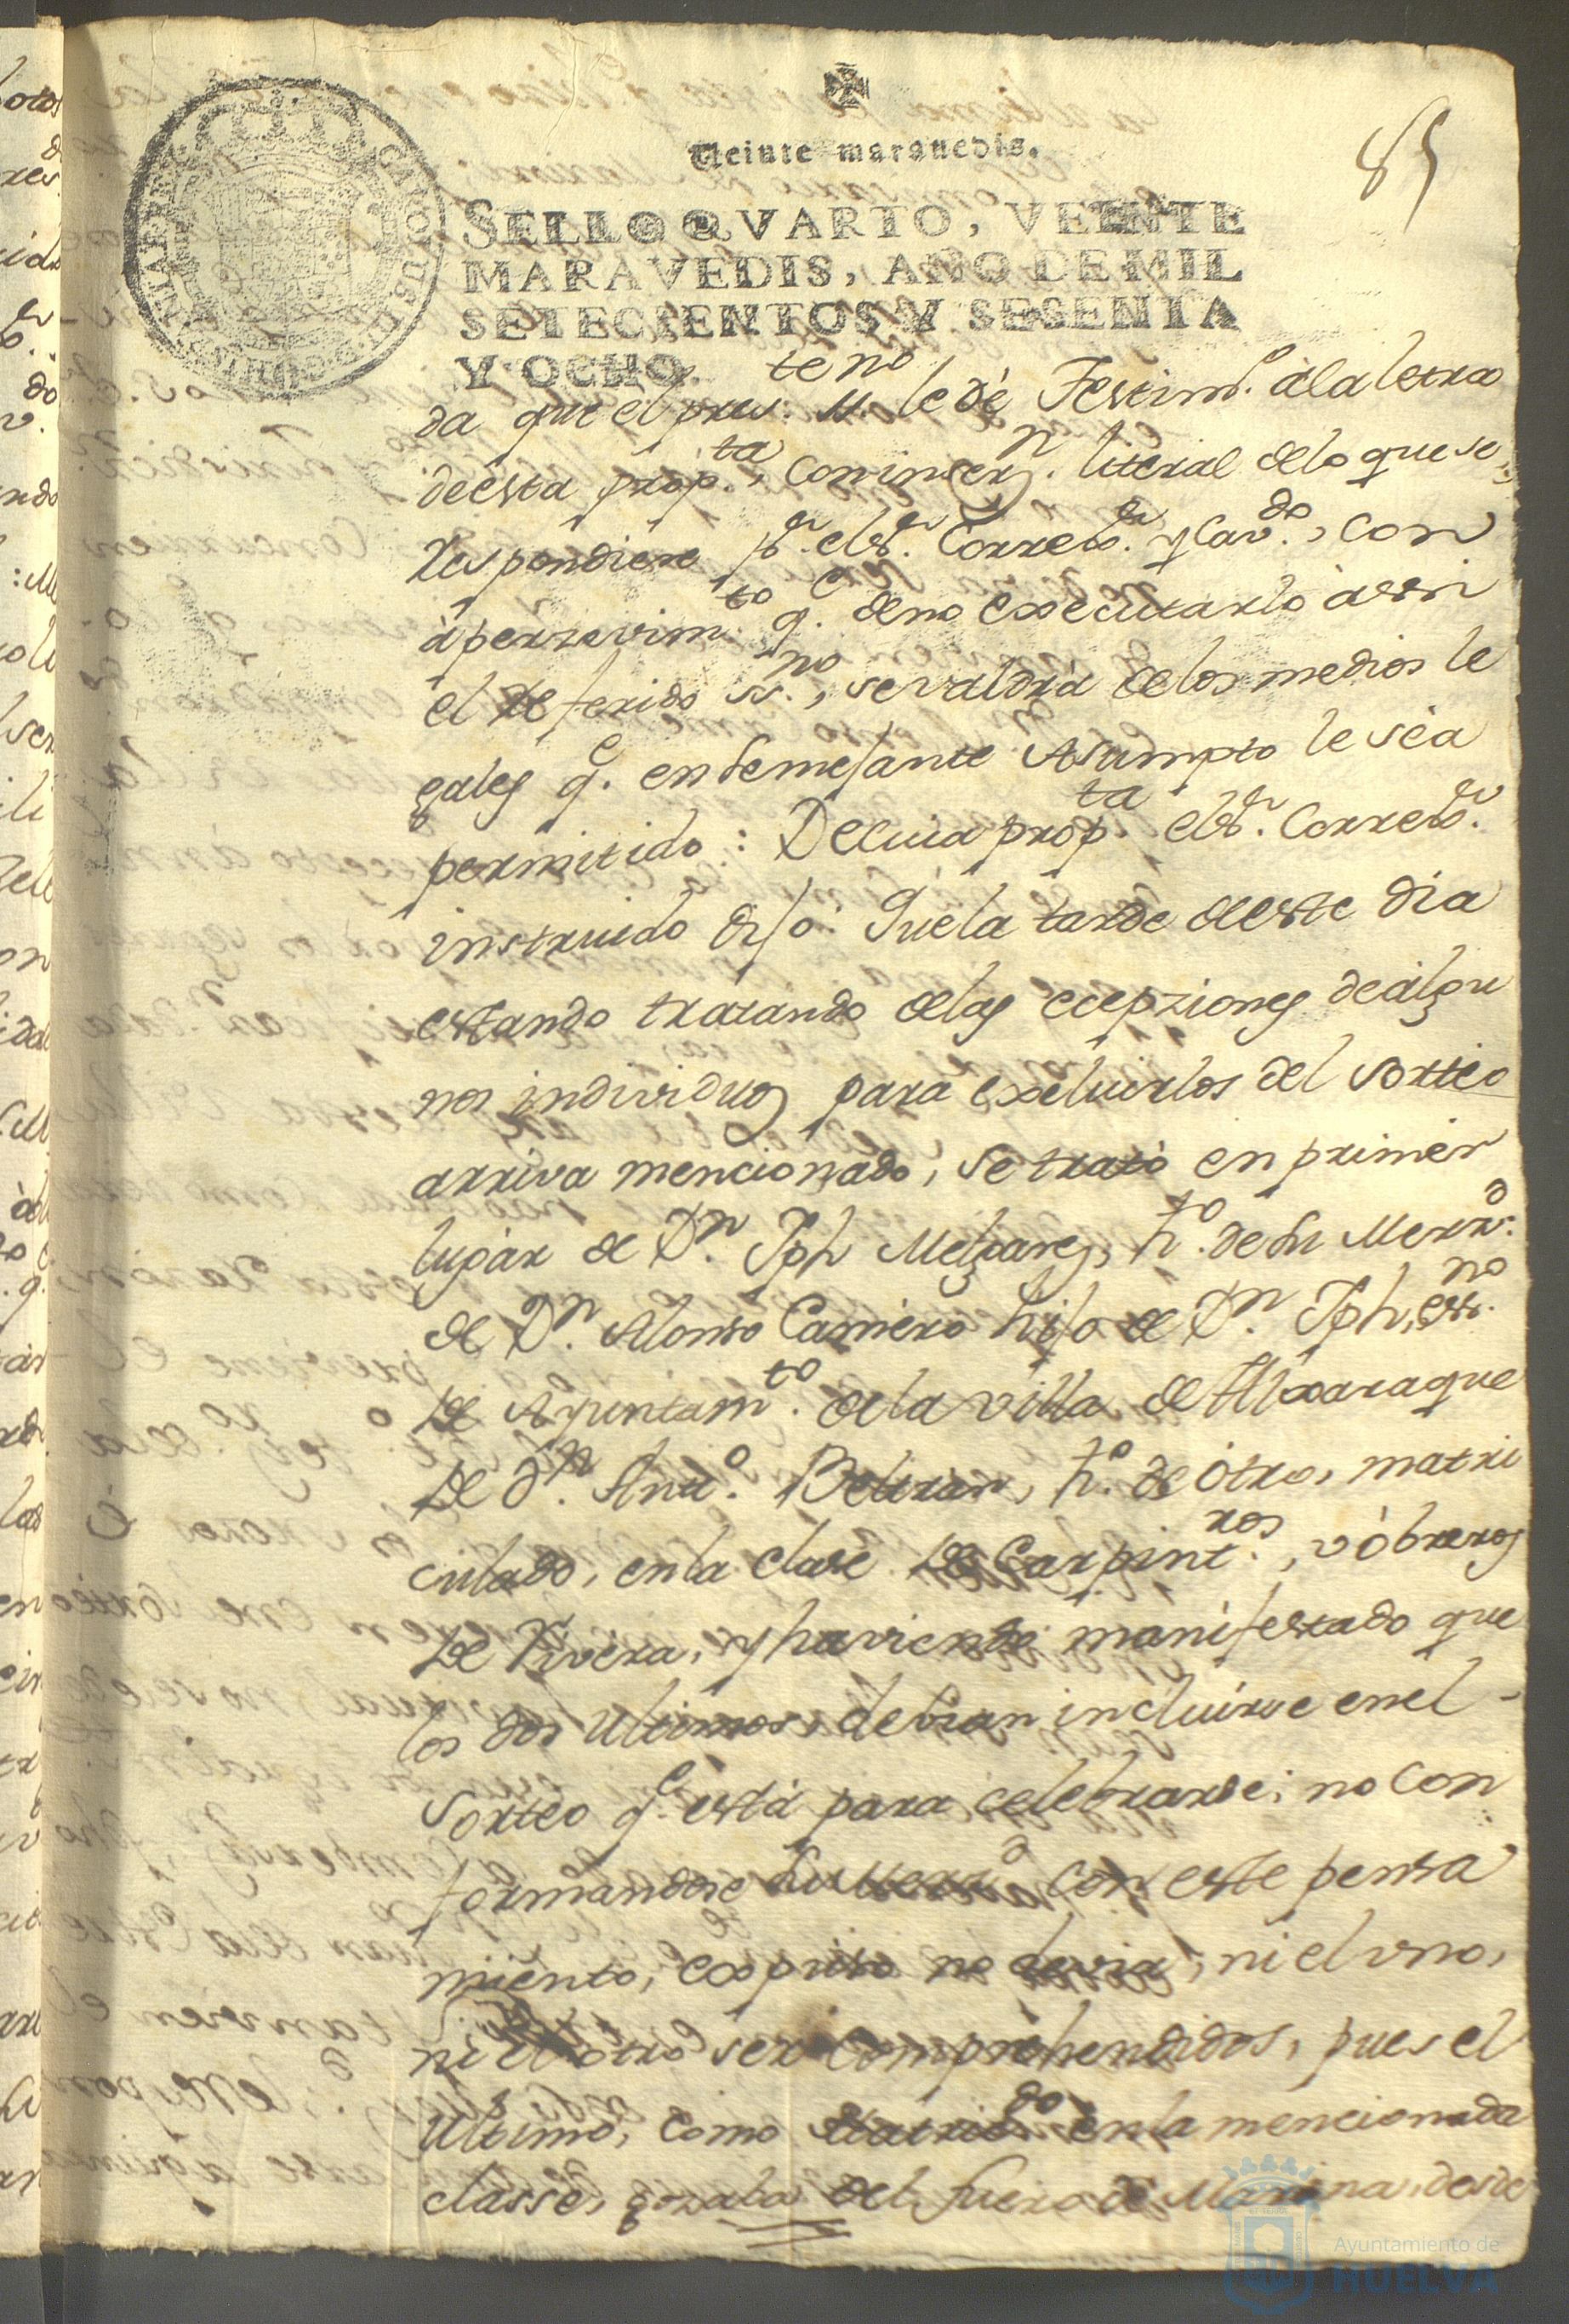 85
Veinte maravedis.
SELLO QVARTO, VEINTE
MARAVEDIS, AÑO DE MIL
SETECIENTOS Y SESENTA
Y OCHO.
da que el pres.te ss.no le dè Testim.o à la letra
de esta prop.ta, con inserz.n literal de lo que se
respondiere p.r el S.r Correx.or y Cav.do, con
aperzevim.to q.e de no executarlo assi
el referido ss.no, se valdrà de los medios le
gales q.e en semejante Asumpto le sea
permitido: De cuia prop.ta el S.r Correx.or
instruido dijo: Que la tarde de este dia
estando tratando de las ecepziones de algu
nos individuos para excluirlos del sorteo
arriva mencionado, se tratò en primer
lugar de D.n Jph Melgarez, h.o de su Merz.d
de D.n Alonso Carriero hijo de D.n Jph, ess.no
de Ayuntam.to de la villa de Aljaraque
de D.n Ant.o Beltran, h.o de otro, matri
culado, en la clase de Carpint.ros, v òbreros
de Rivera, y haviendo manifestado que
los dos ultimos, debian incluirse en el
Sorteo q.e està para celebrarse; no con
formandose su Merz.d con este pensa
miento, expuso no devia, ni el uno,
ni el otro ser comprehendidos, pues el
ultimo, como Matric.do en la mencionada
classe, gozaba del fuero de Marina, desde
Ayuntamiento de
HUELVA